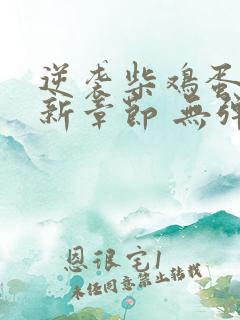 逆袭柴鸡蛋
新章节 無弹
恩很宅1
未经同意禁止转载